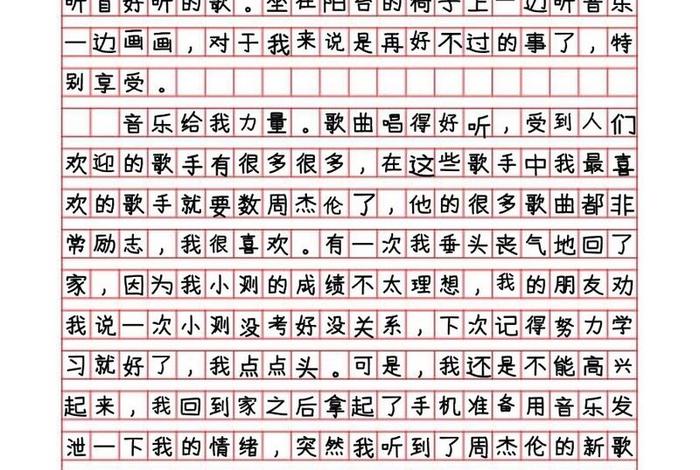 听首好听的歌。坐在阳台的椅子上一边听音乐
一边画画，对于我来说是再好不过的事了，特
别享受。
音乐给我力量。歌曲唱得好听，受到人们
欢迎的歌手有很多很多，在这些歌手中我最喜
欢的歌手就要数周杰伦了，他的很多歌曲都非
常励志，我很喜欢。有一次我垂头丧气地回了
家，因为我小测的成绩不太理想，我的朋友劝
我说一次小测没考好没关系，下次记得努力学
习就好了，我点点头。可是，我还是不能高兴
起来，我回到家之后拿起了手机准备用音乐发
泄一下我的情绪，突然我听到了周杰伦的新歌